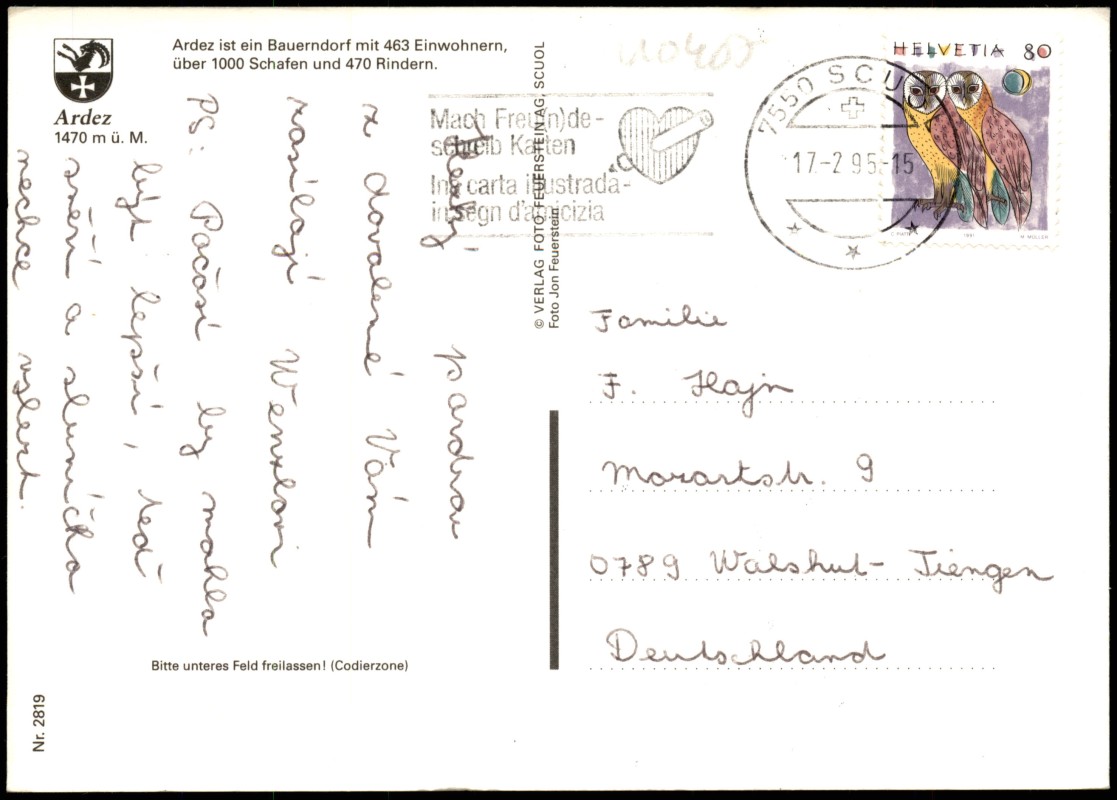 Ardez ist ein Bauerndorf mit 463 Einwohnern,
über 1000 Schafen und 470 Rindern.
Ardez
1470 m ü. M.
Hezký pozdrav
z dovolené Vám
zasílají Wenzlovi
PS: Počasí by mohlo
být lepší, teď
sněží a sluníčka
nechce vylézt.
© VERLAG FOTO FEUERSTEIN AG, SCUOL
Foto Jon Feuerstein
Mach Freu(n)de-
schreib Karten
Ina carta illustrada-
in segn d'amicizia
7550 SCUOL
17-2 95-15
HELVETIA 80
Familie
F. Hajn
Mozartstr. 9
0789 Walshut-Tiengen
Deutschland
Bitte unteres Feld freilassen! (Codierzone)
Nr. 2819